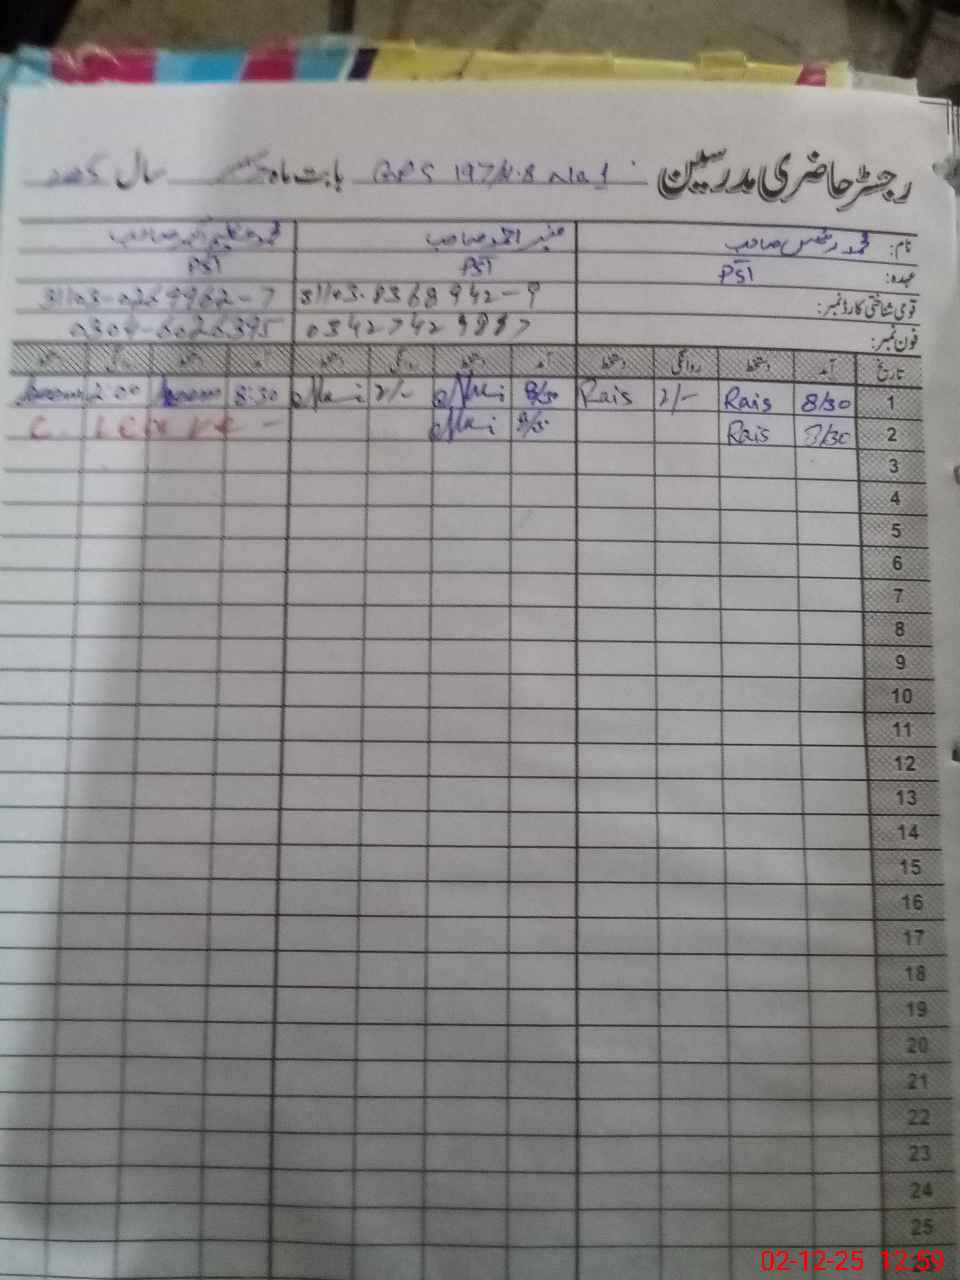 رجسٹر حاضری مدرسین GPS 197/M.8 No 1 بابت ماہ دسمبر سال 2025
نام: محمد رئیس صاحب منیر احمد صاحب محمد صاحب
عہدہ: PST PST PST
قومی شناختی کارڈ نمبر: 31103-8368942-9 31103-0269962-7
فون نمبر: 03427429887
تاریخ آمد دستخط روانگی دستخط آمد دستخط روانگی دستخط آمد دستخط روانگی دستخط
1 8/30 Rais 2/- Rais 8/30 2/- 8:30 2:00
2 8/30 Rais 8/30 C. Leave -
3
4
5
6
7
8
9
10
11
12
13
14
15
16
17
18
19
20
21
22
23
24
25
02-12-25 12:59